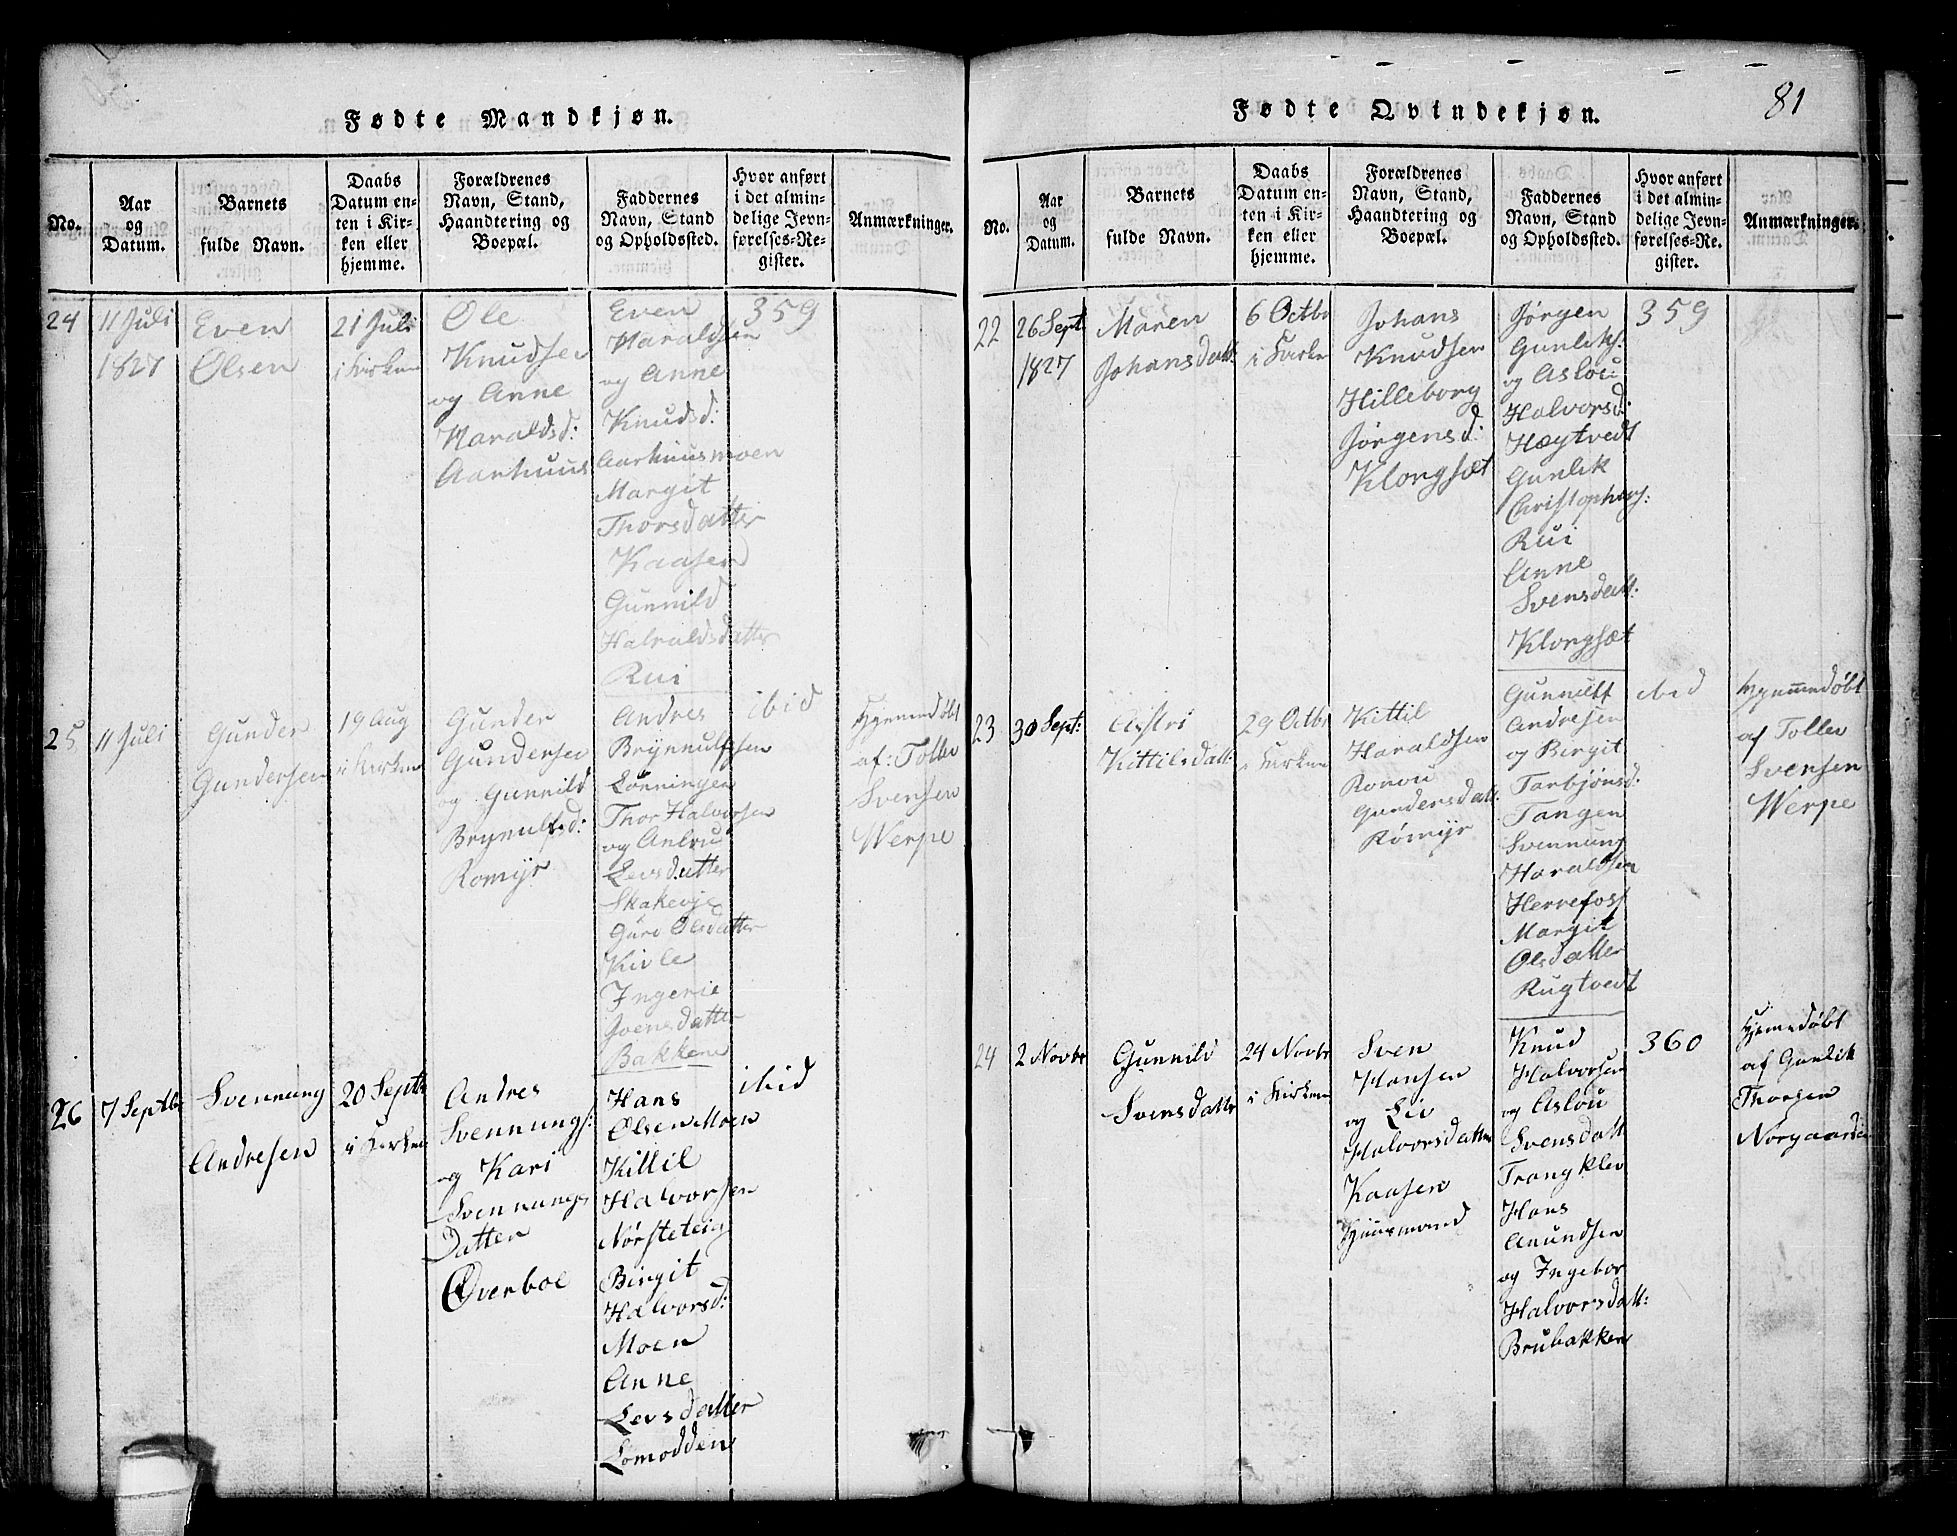 Fødte Mandkjøn.
No.
Aar
og
Datum.
Barnets
fulde Navn.
Daabs
Datum en-
ten i Kir-
ken eller
hjemme.
Forældrenes
Navn, Stand,
Haandtering og
Boepæl.
Faddernes
Navn, Stand
og Opholdssted.
Hvor anført
i det almin-
delige Jevn-
førelses-Re-
gister.
Anmærkninger.
24
11 Juli
1827
Even
Olsen
21 Juli
i Kirken
Ole
Knudsen
og Anne
Haraldsd:
Aarhuus
Even
Haraldsen
og Anne
Knudsd:
Aarhuusmoen
Margit
Thorsdatter
Kaasen
Gunnild
Halvaldsdatter
Rui
359
25
11 Juli
Gunder
Gundersen
19 Aug
i Kirken
Gunder
Gundersen
og Gunnild
Brynulfsd:
Romyr
Andres
Brynnulfsen
Lønningen
Thor Halvorsen
og
Levsdatter
Skakevje
Guro Olsdatter
Kivle
Ingerie
Svensdatter
Bakken
ibid
Hjemmedøbt
af: Tollev
Svensen
Werpe
26
7 Septbr
Svennung
Andresen
20 Septbr
i Kirken
Andres
Svennungs:
og Kari
Svennungs
Datter
Øverboe
Hans
Olsen Moen
Kittil
Halvorsen
Nørsteteig
Birgit
Halvorsd:
Moen
Anne
Levsdatter
Lomodden
ibid
81
Fødte Qvindekjøn.
No.
Aar
og
Datum.
Barnets
fulde Navn.
Daabs
Datum en-
ten i Kir-
ken eller
hjemme.
Forældrenes
Navn, Stand,
Haandtering og
Boepæl.
Faddernes
Navn, Stand
og Opholdssted.
Hvor anført
i det almin-
delige Jevn-
førelses-Re-
gister.
Anmærkninger.
22
26 Sept
1827
Maren
Johansdatt:
6 Octbr
i Kirken
Johans
Knudsen
Hilleborg
Jørgensd:
Klongsæt
Jørgen
Gunleks:
og Aslou:
Halvorsd:
Høgtvedt
Gunlik
Christophers:
Rui
Anne
Svensdatt:
Klongsæt
359
23
30 Sept:
Astri
Kittilsdatt:
29 Octbr
i Kirken
Kittil
Haraldsen
Ronou
Gundersdatt:
Rómyr
Gunnulf
Andresen
og Birgit
Tarbjønsd:
Tangen
Svennung
Haraldsen
Herrefoss
Margit
Olsdatter
Rugtvedt
ibid
Hjemmedøbt
af Tollev
Svensen
Werpe
24
2 Novbr
Gunnild
Svensdatter
24 Novbr
i Kirken
Sven
Hansen
og Liv
Halvorsdatter
Kaasen
Huusmand
Knud
Halvorsen
og Aslou
Svensdatt
Trangklev
Hans
Anundsen
og Ingebor
Halvorsdatt:
Brubakken
360
Hjemmedøbt
af Gunlik
Thorsen